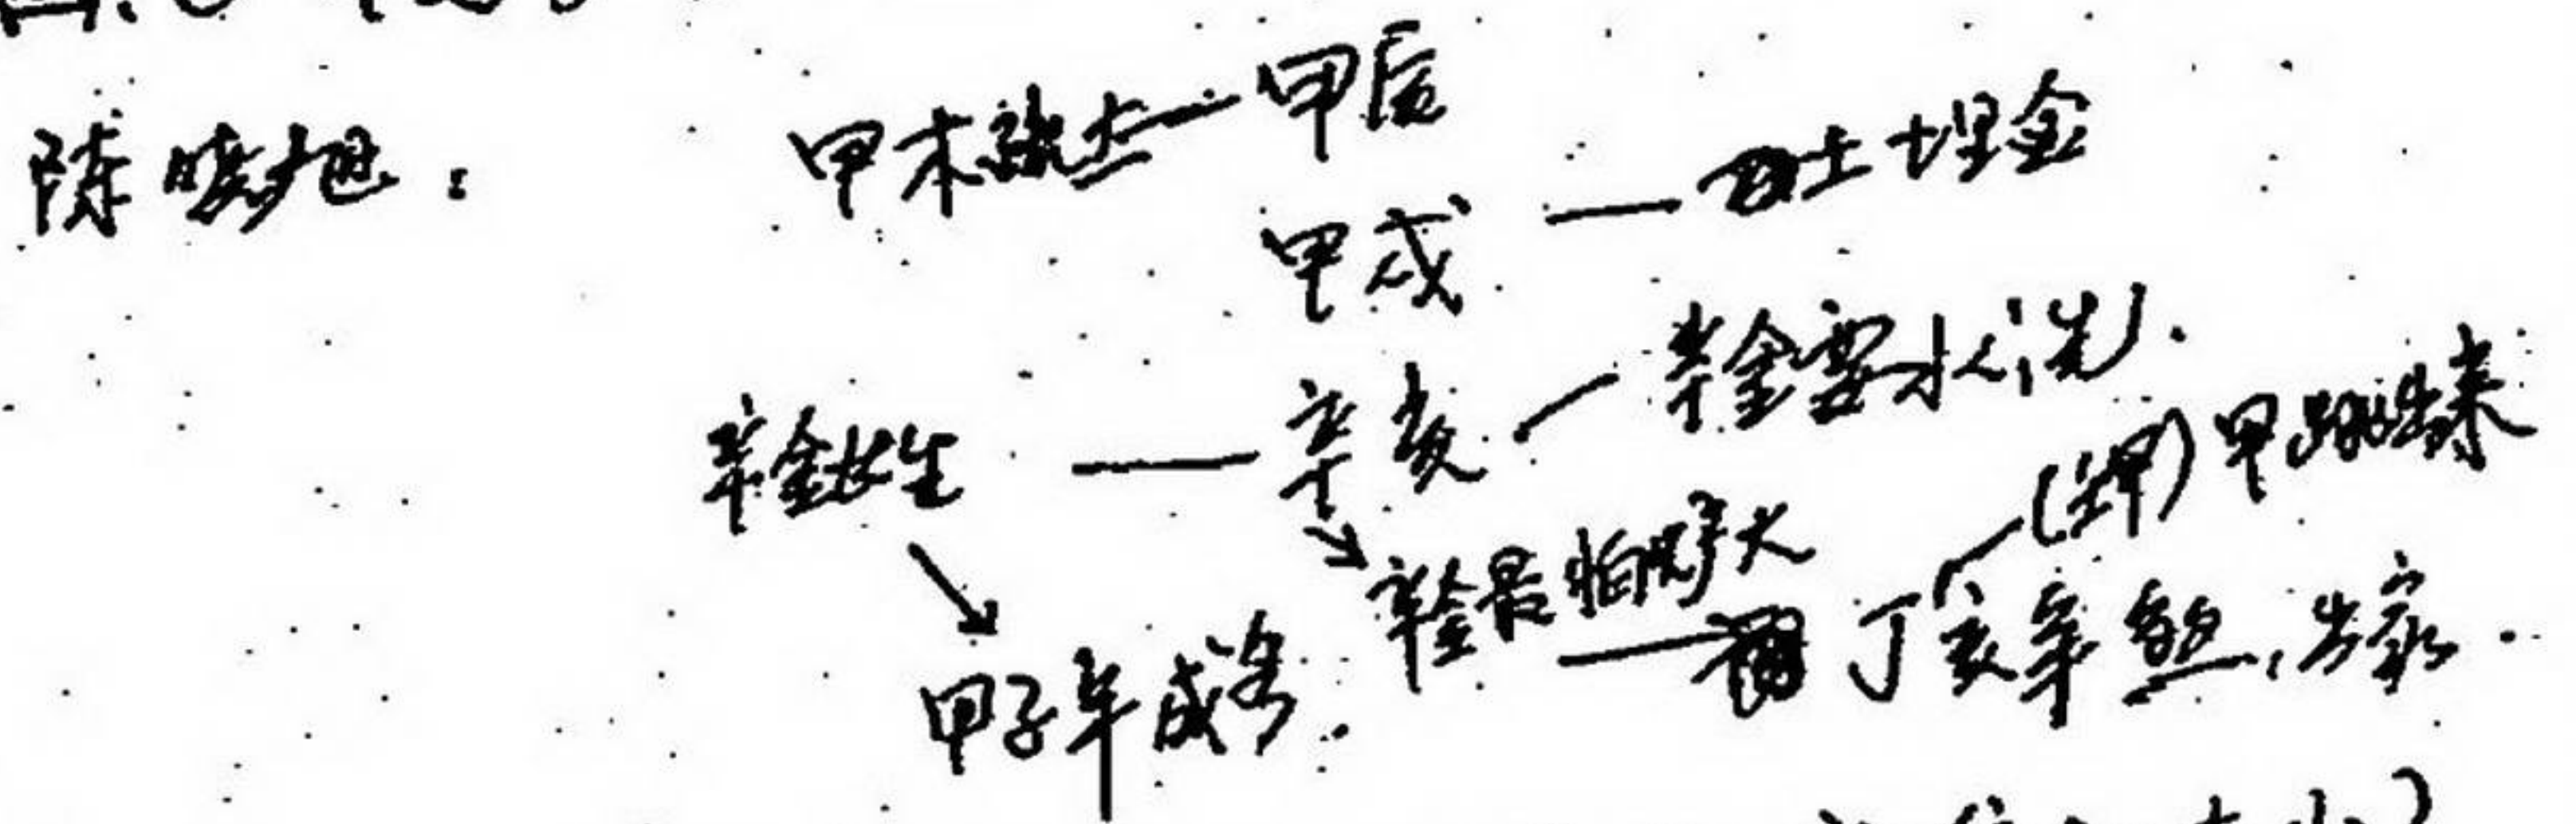 陈晓旭：
甲木疏土一甲辰
甲戌 — 土埋金
辛金长生 — 辛亥 — 辛金要水洗.
辛金最怕明火 — 丁亥年 ，出家.
(甲) 甲跳出来
甲子年成名.